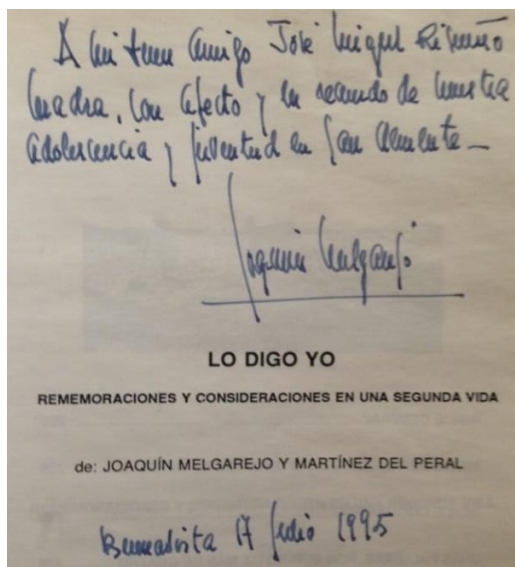 A mi buen amigo José Miguel
Cuadra, con afecto y en recuerdo de nuestra
adolescencia y juventud en San Clemente_
Joaquín Melgarejo
LO DIGO YO
REMEMORACIONES Y CONSIDERACIONES EN UNA SEGUNDA VIDA
de: JOAQUÍN MELGAREJO Y MARTÍNEZ DEL PERAL
Buenavista 17 Julio 1995